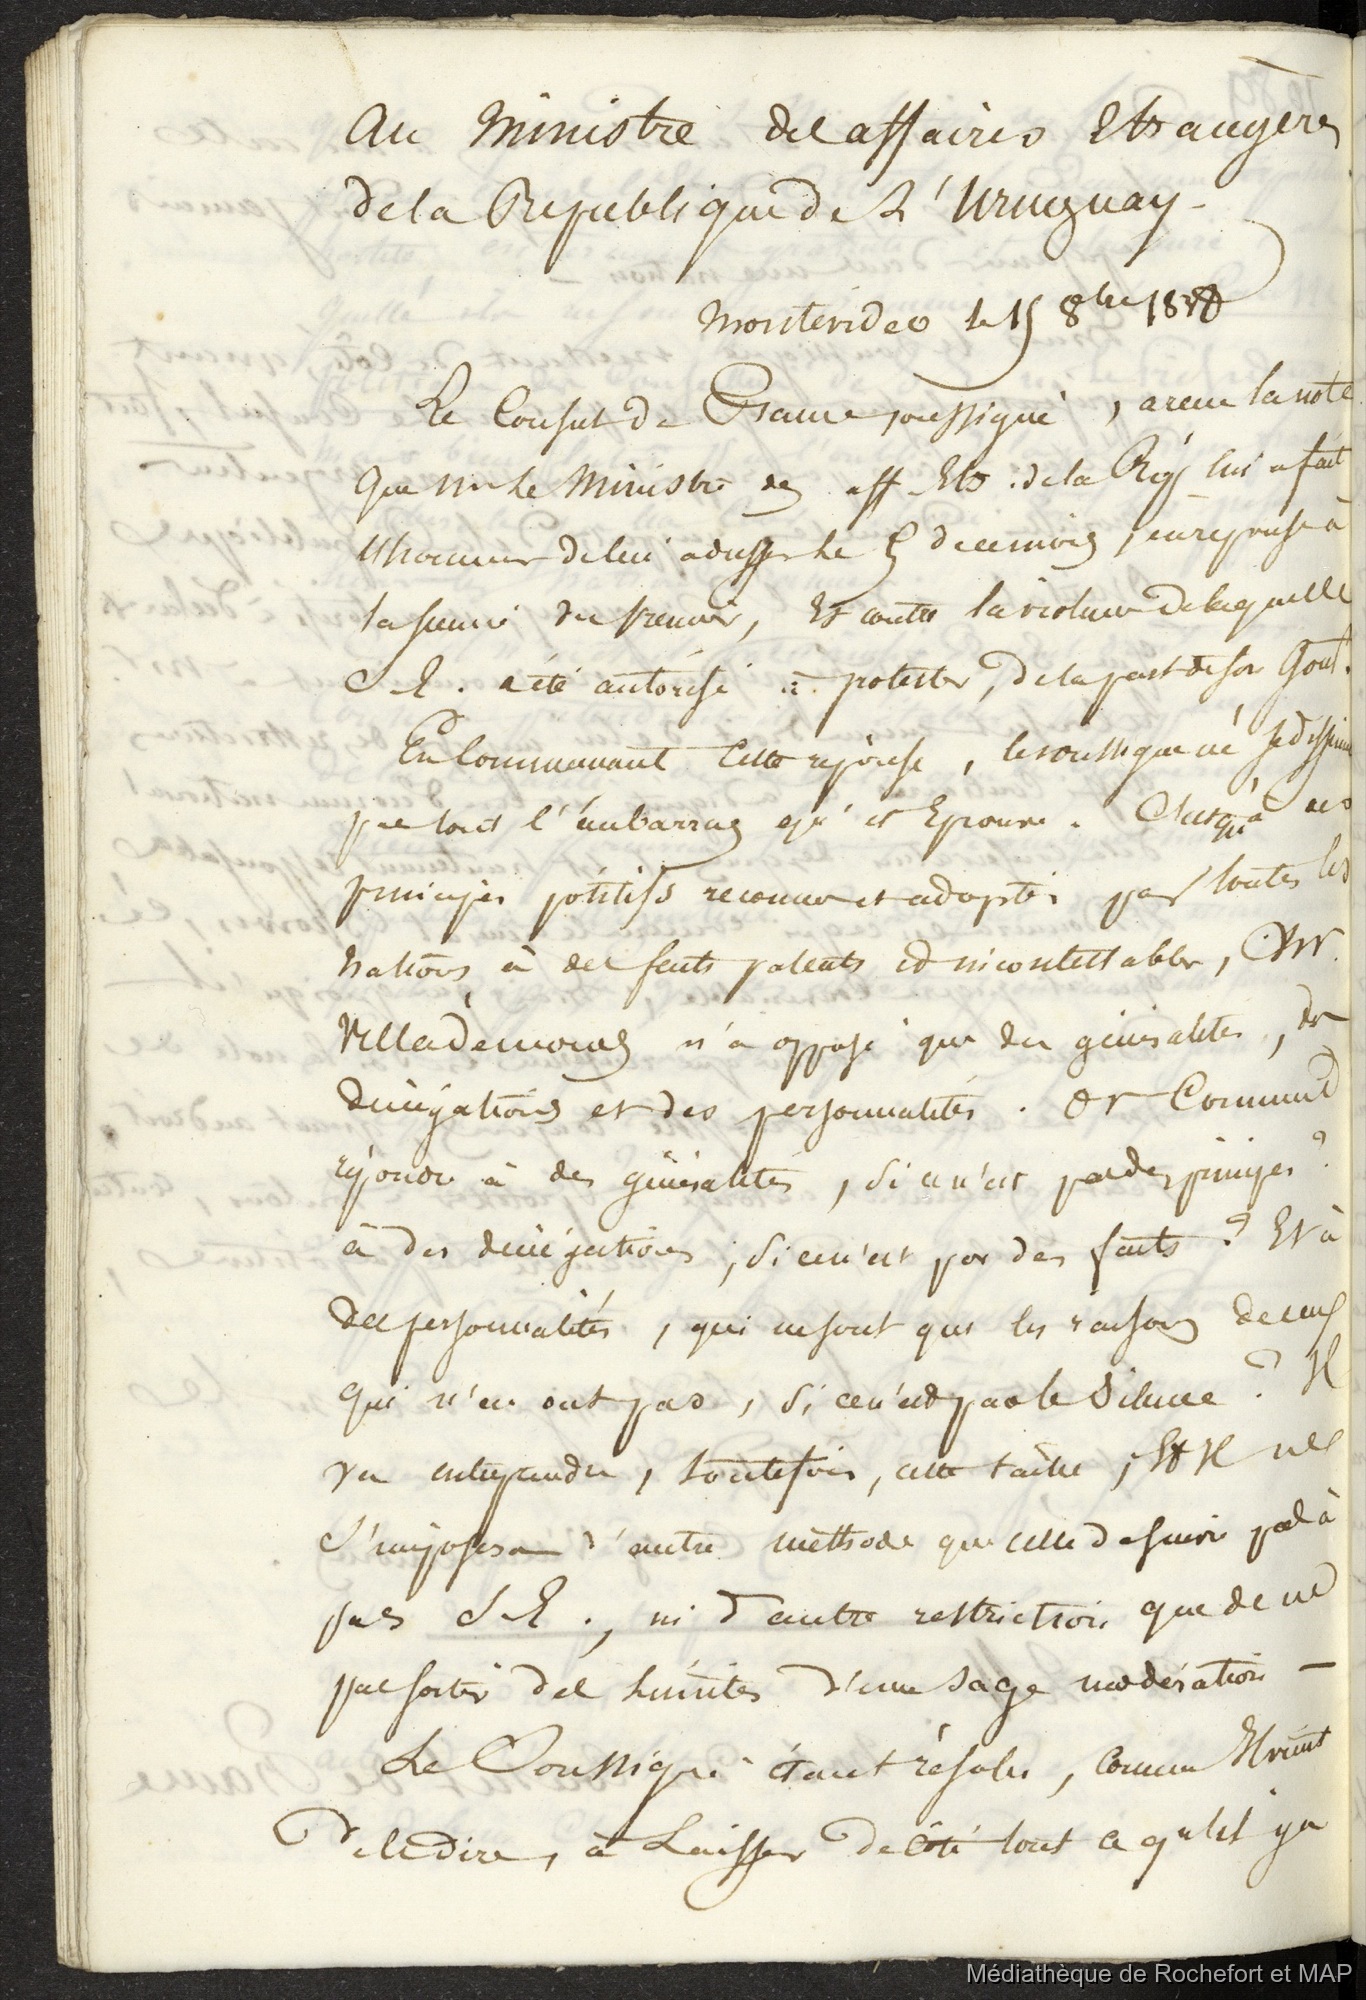 Au Ministre des affaires Etrangeres
de la Republique de L'Uruguay -
Montevideo le 15 8bre 1838
Le Consul de France soussigné, a recu la note
que Mr le Ministre des aff Etr: de la Rép lui a fait
l'honneur de lui adresser le 5 de ce mois, en reponse à
la sienne du premier, Et contre la violence de laquelle
S. E. a été autorisé à protester, de la part de son Gout.
En commencant cette réponse, le soussigné ne se dissimule
pas tout l'embarras qu'il Eprouve. Jusqu'à des
principes positifs reconnus et adoptés par toutes les
nations, à des faits patents et incontestables, Mr.
Villademoros n'a opposé que des généralités, des
dénégations et des personnalités. Or Comment
répondre à des généralités, si ce n'est par des principes?
à des dénégations, si ce n'est par des faits? Et à
des personnalités, qui ne sont que les raisons de ceux
qui n'en ont pas, si ce n'est par le Silence? Il
va entreprendre, toutefois, cette tâche, Et Il ne
s'imposera d'autre méthode que celle de suivre pas à
pas S. E., ni d'autre restriction que de ne
pas sortir des limites d'une sage modération -
Le Soussigné étant résolu, comme Il vient
de le dire, à Laisser de côté tout ce qu'il y a
Médiathèque de Rochefort et MAP